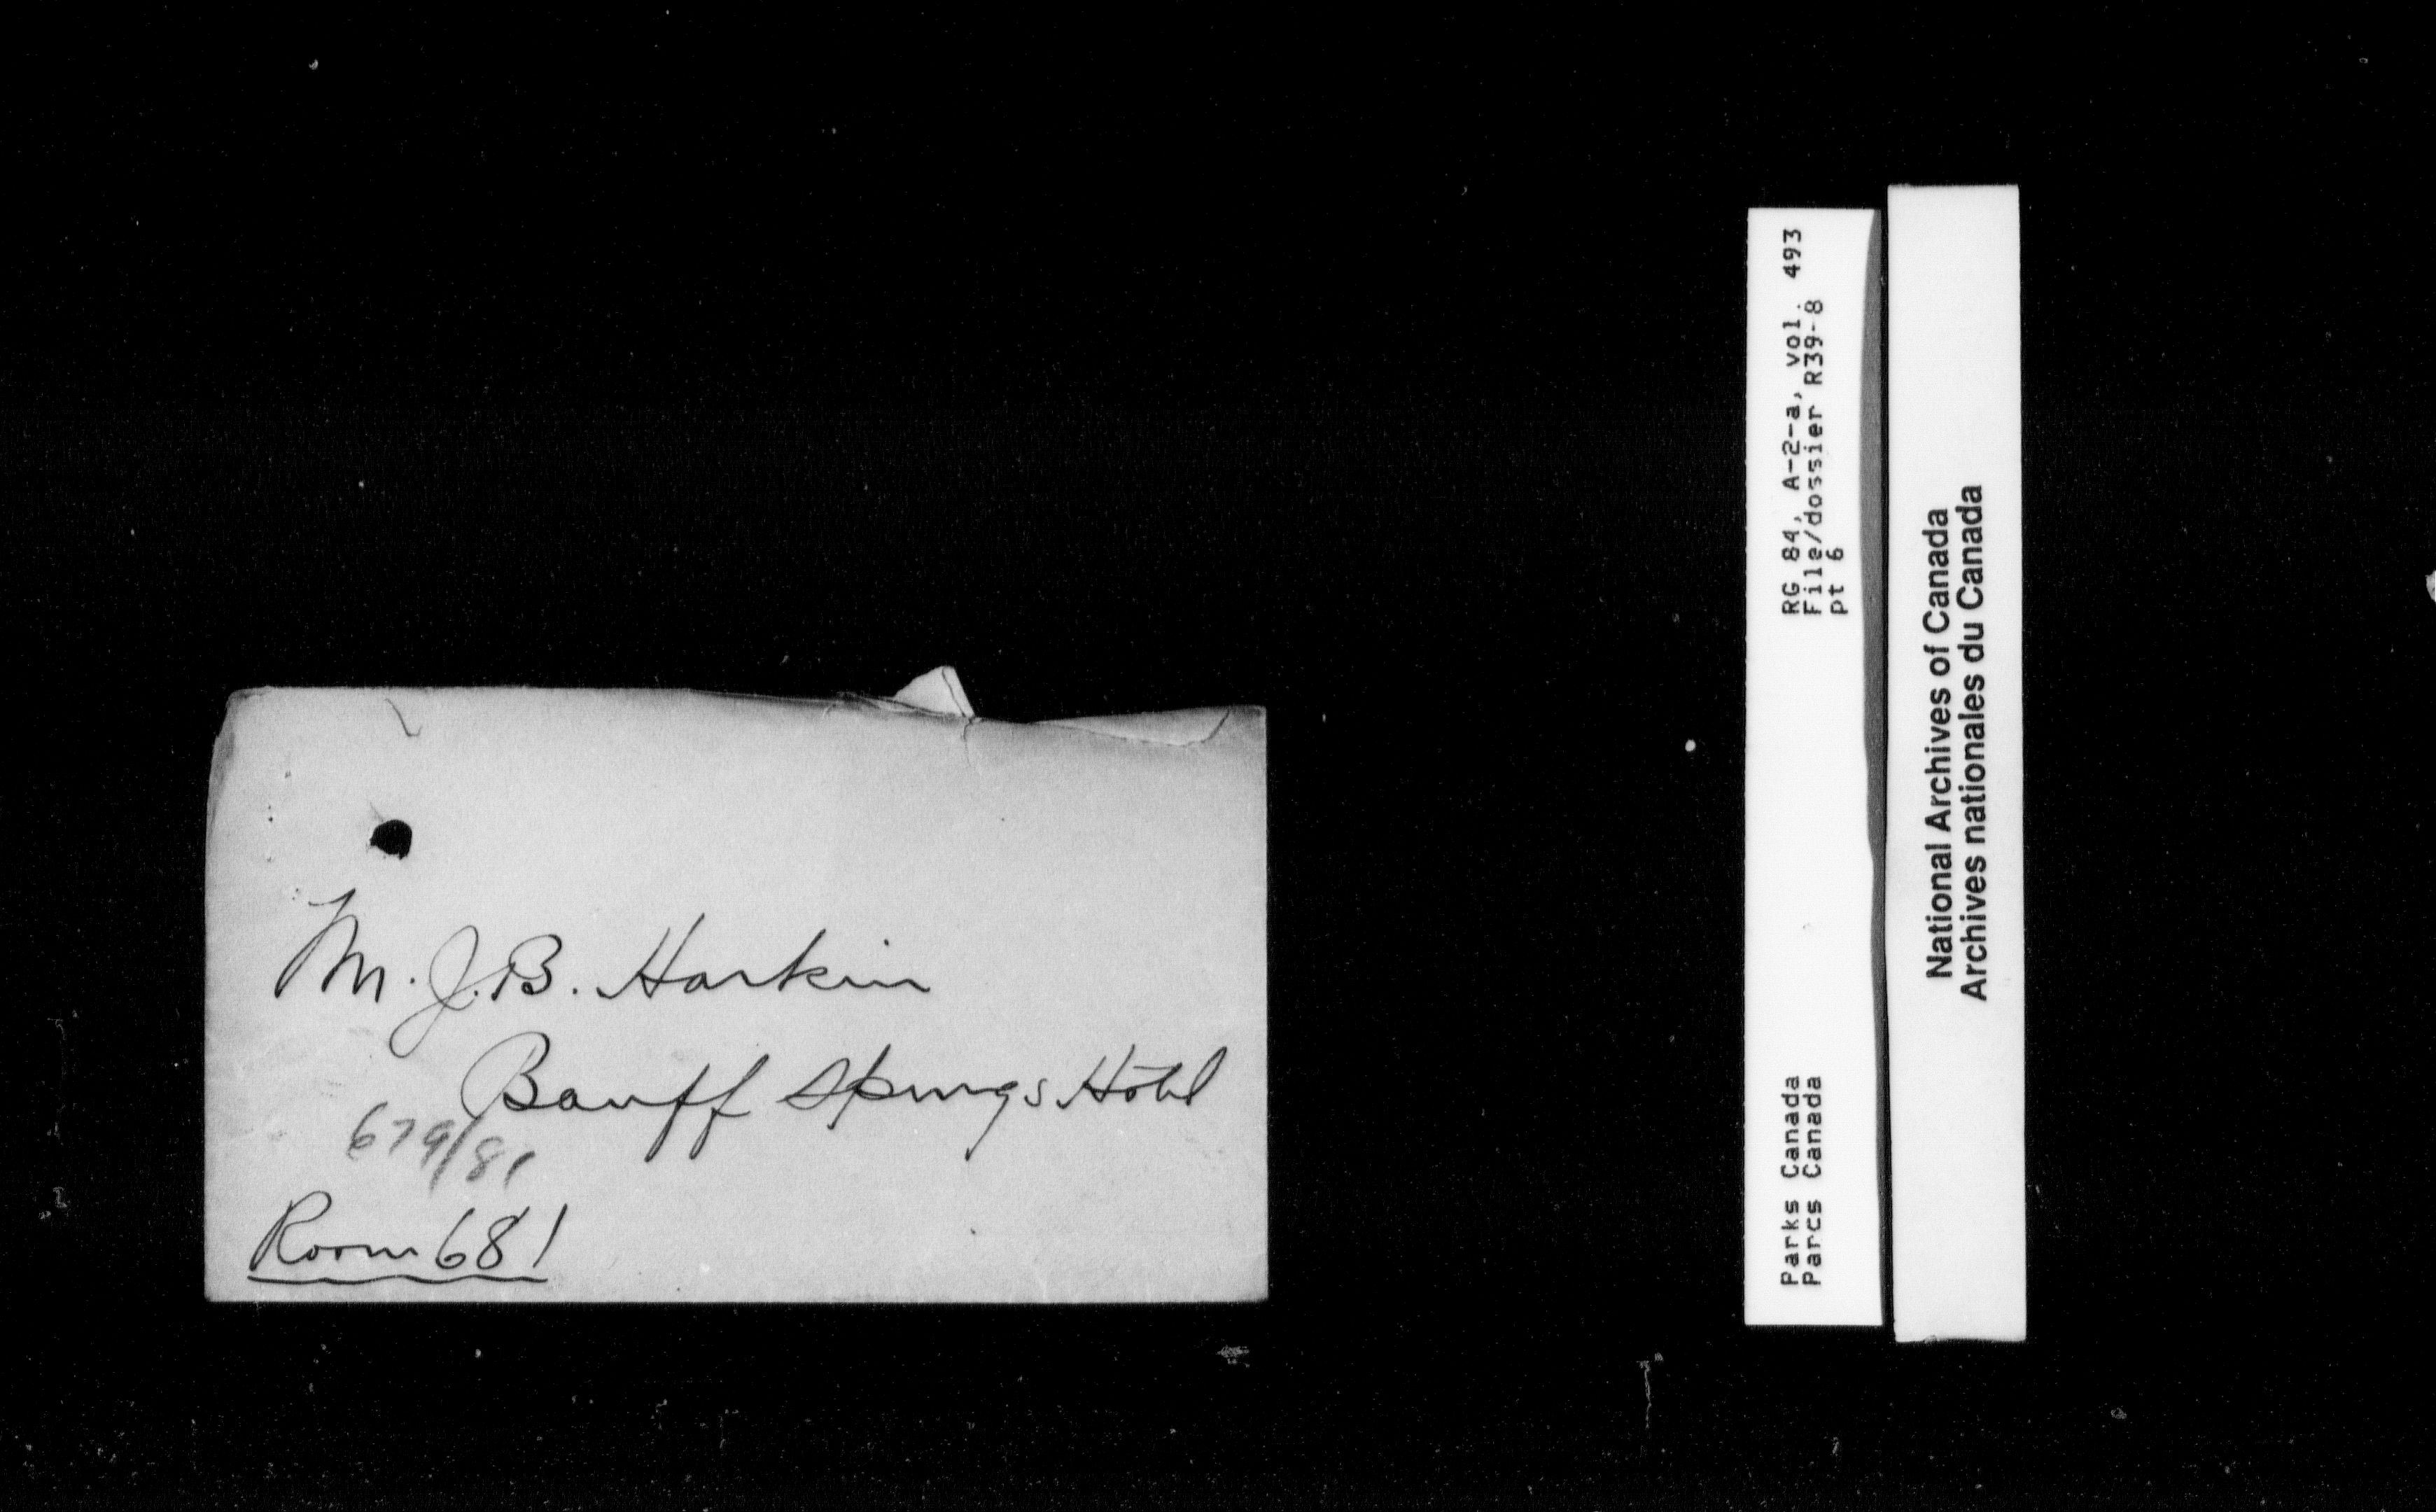 M. J. B. Harkin
Banff Springs Hotel
679/81
Room 681
Parks Canada
Parcs Canada
RG 84, A-2-a, vol. 493
File/dossier R39-8
pt 6
National Archives of Canada
Archives nationales du Canada